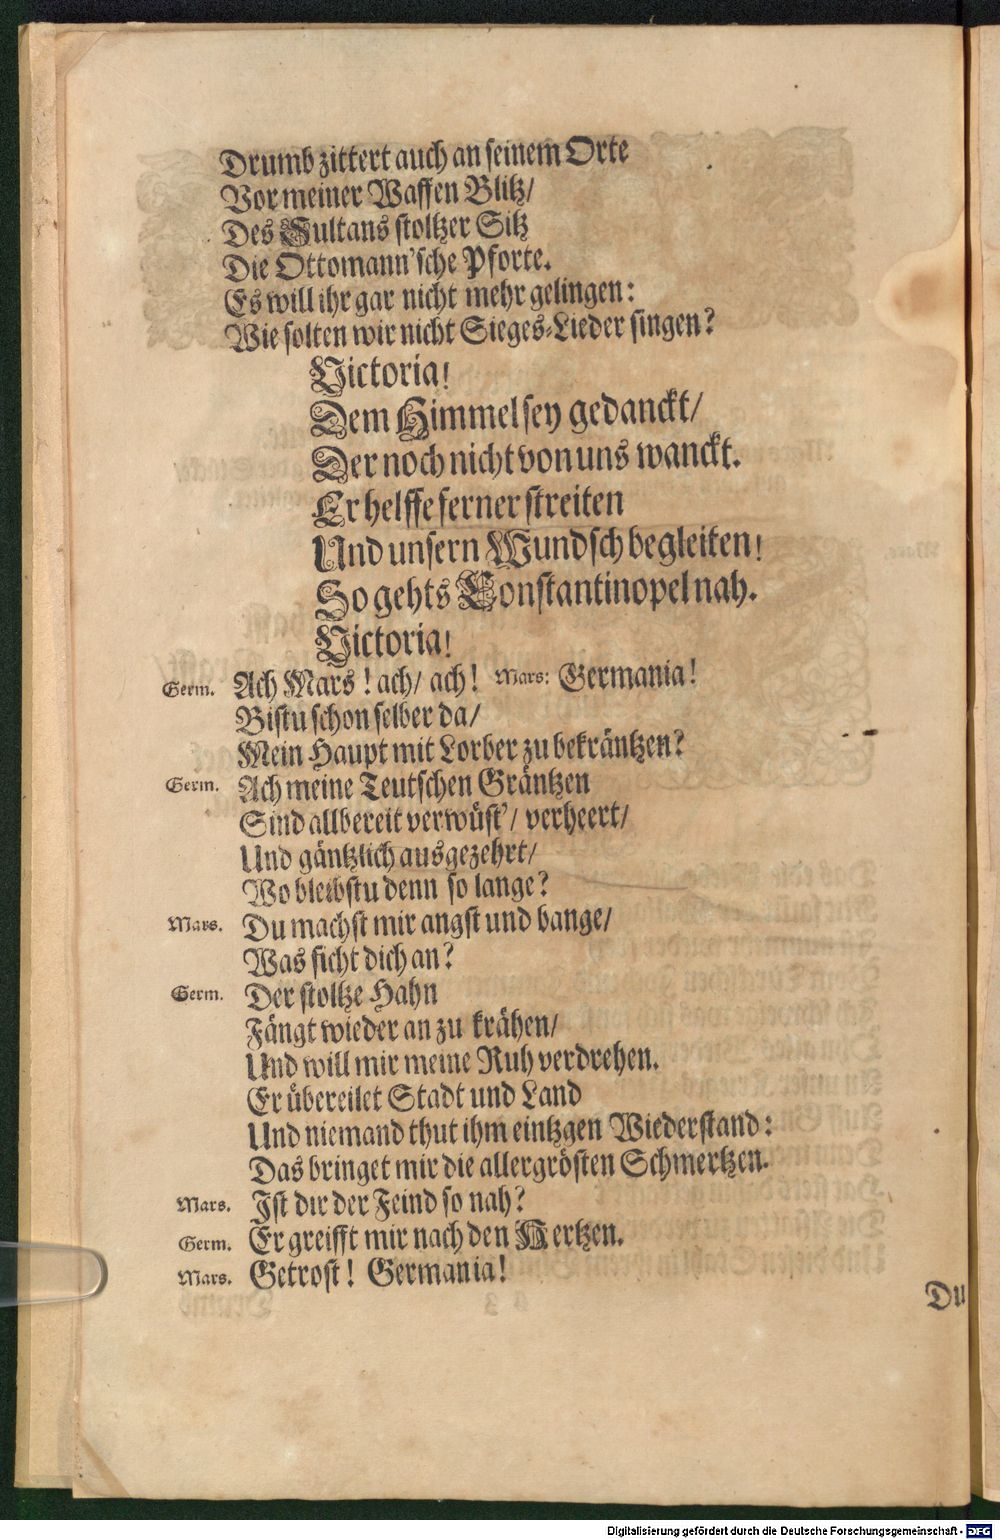 Drumb zittert auch an seinem Orte
Vor meiner Waffen Blitz/
Des Sultans stoltzer Sitz
Die Ottomann'sche Pforte.
Es will ihr gar nicht mehr gelingen:
Wie solten wir nicht Sieges-Lieder singen?
Victoria!
Dem Himmel sey gedanckt/
Der noch nicht von uns wanckt.
Er helffe ferner streiten
Und unsern Wundsch begleiten!
So gehts Constantinopel nah.
Victoria!
Germ. Ach Mars! ach/ ach! Mars: Germania!
Bistu schon selber da/
Mein Haupt mit Lorber zu bekräntzen?
Germ. Ach meine Teutschen Gräntzen
Sind allbereit verwüst'/ verheert/
Und gäntzlich ausgezehrt/
Wo bleibstu denn so lange?
Mars. Du machst mir angst und bange/
Was ficht dich an?
Germ. Der stoltze Hahn
Fängt wieder an zu krähen/
Und will mir meine Ruh verdrehen.
Er übereilet Stadt und Land
Und niemand thut ihm eintzgen Wiederstand:
Das bringet mir die allergrösten Schmertzen.
Mars. Ist dir der Feind so nah?
Germ. Er greifft mir nach den Hertzen.
Mars. Getrost! Germania!
Du
Digitalisierung gefördert durch die Deutsche Forschungsgemeinschaft - DFG